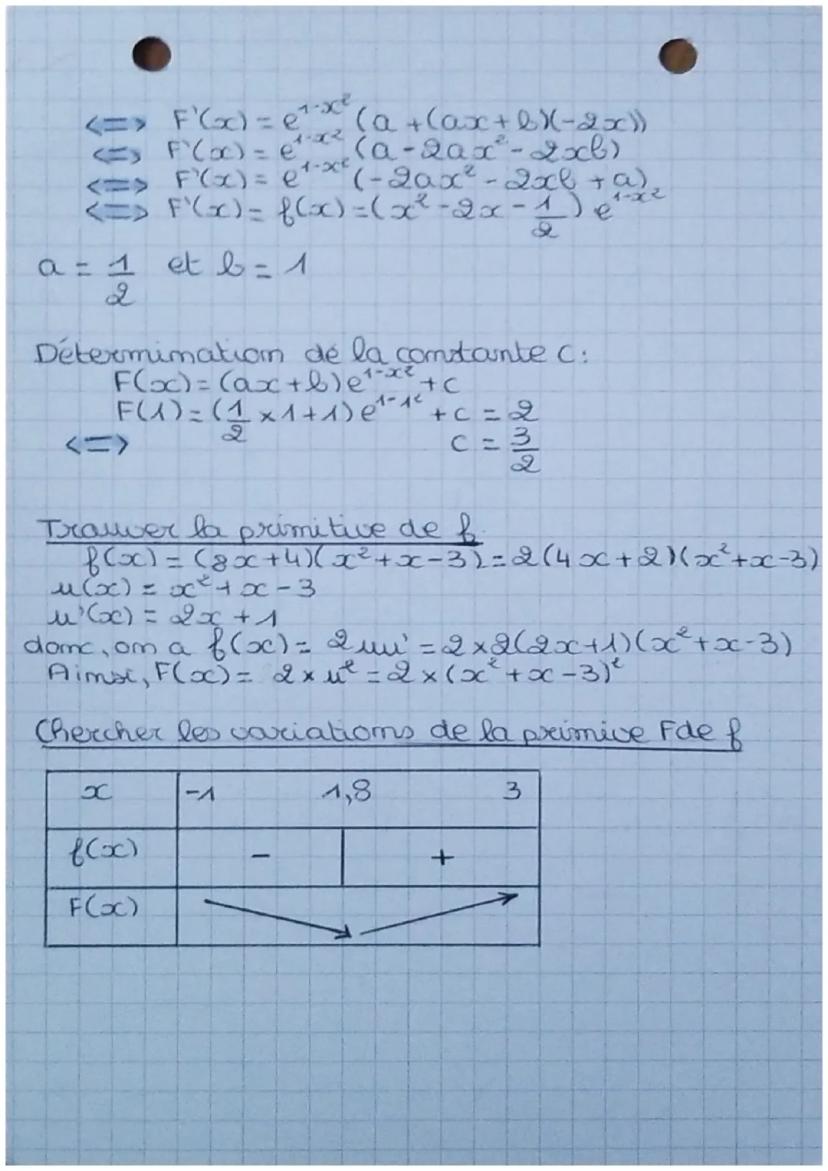 <=> F'(x) = e^{1-x²} (a + (ax + b)(-2x))
<=> F'(x) = e^{1-x²} (a - 2ax² - 2xb)
<=> F'(x) = e^{1-x²} (-2ax² - 2xb + a)
<=> F'(x) = f(x) = (x² - 2x - 1/2) e^{1-x²}
a = 1/2 et b = 1
Détermination de la constante c :
F(x) = (ax + b) e^{1-x²} + c
F(1) = (1/2 × 1 + 1) e^{1-1²} + c = 2
<=> c = 3/2
Trouver la primitive de f
f(x) = (8x + 4)(x² + x - 3) = 2(4x + 2)(x² + x - 3)
u(x) = x² + x - 3
u'(x) = 2x + 1
donc, on a f(x) = 2uu' = 2 × 2(2x + 1)(x² + x - 3)
Ainsi, F(x) = 2 × u² = 2 × (x² + x - 3)²
Chercher les variations de la primive F de f
x -1 1,8 3
f(x) - +
F(x)